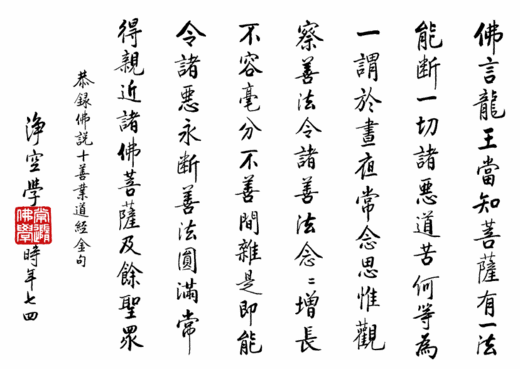 佛言龍王當知菩薩有一法
能断一切諸惡道苦何等為
一謂於晝夜常念思惟觀
察善法令諸善法念〻增長
不容毫分不善間雜是即能
令諸惡永断善法圓滿常
得親近諸佛菩薩及餘聖眾
恭録佛説十善業道經金句
淨空學
時年七四